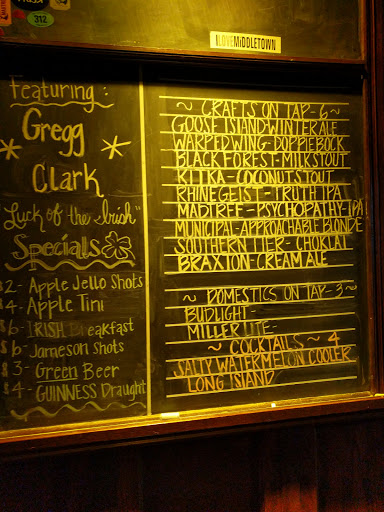 312
I LOVE MiDDLETOWN
Featuring:
Gregg
Clark
"Luck of the Irish"
Specials
$2- Apple Jello Shots
$4- Apple Tini
$6- IRISH Breakfast
$6- Jameson Shots
$3- Green Beer
$4- GUINNESS Draught
~ CRAFTS ON TAP- 6 ~
GOOSE ISLAND WINTER ALE
WARPED WING- DOPPLEBOCK
BLACK FOREST- MILK STOUT
KITKA- COCONUT STOUT
RHINEGEIST- TRUTH IPA
MADTREE- PSYCHOPATHY- IPA
MUNICIPAL- APPROACHABLE BLONDE
SOUTHERN TIER- CHOKLAT
BRAXTON- CREAM ALE
~ DOMESTICS ON TAP- 3 ~
BUDLIGHT-
MILLER LITE-
~ COCKTAILS ~ 4
SALTY WATERMELON COOLER
LONG ISLAND